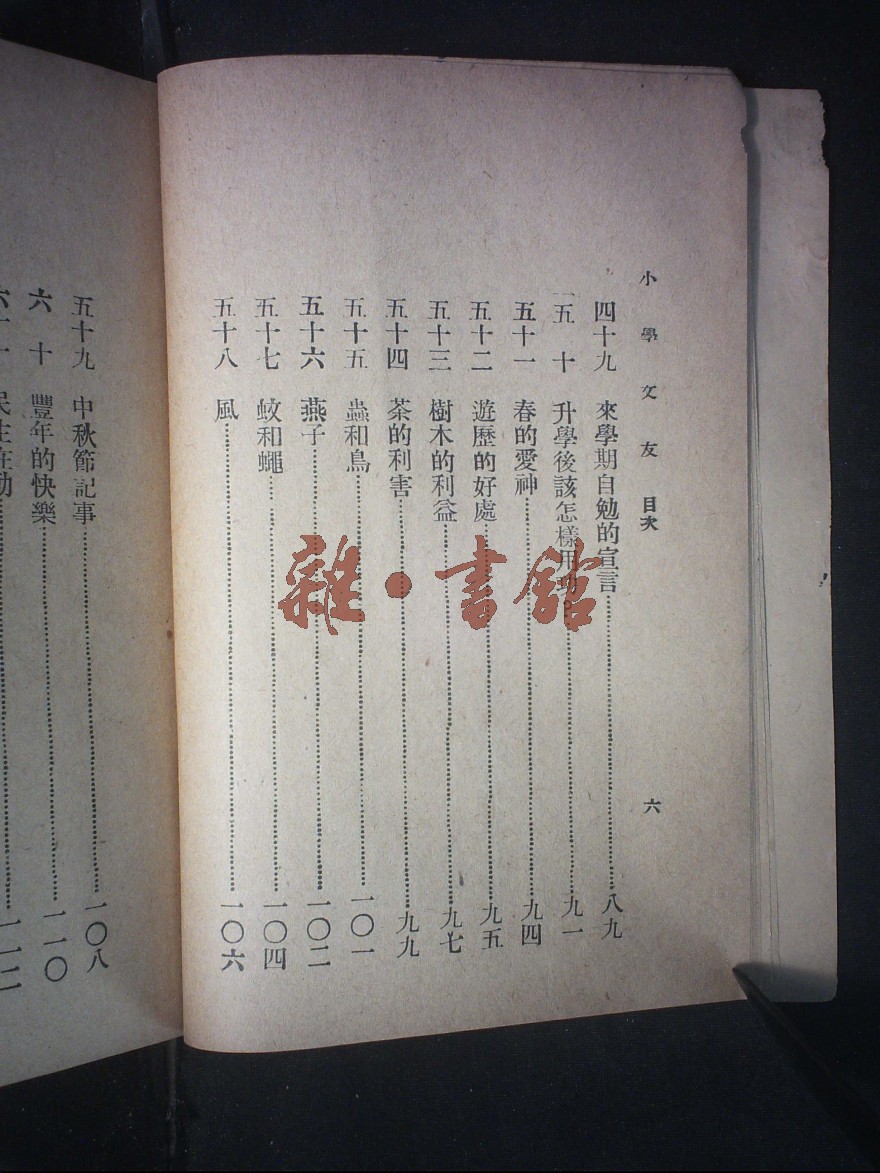 小學文友 目次 六
四十九 來學期自勉的宣言 八九
五十 升學後該怎樣用 九一
五十一 春的愛神 九四
五十二 遊歷的好處 九五
五十三 樹木的利益 九七
五十四 茶的利害 九九
五十五 蟲和鳥 一〇一
五十六 燕子 一〇二
五十七 蚊和蠅 一〇四
五十八 風 一〇六
五十九 中秋節記事 一〇八
六十 豐年的快樂 一一〇
民生在勤 一一二
雜·書館